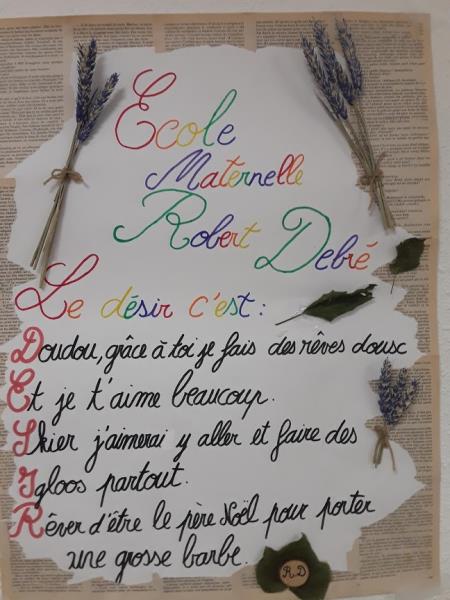 Ecole
Maternelle
Robert Debré
Le désir c'est :
Doudou, gâce à toi je fais des rêves dousc
Et je t'aime beaucoup.
Skier j'aimerai y aller et faire des
Igloos partout.
Rêver d'être le père Noël pour porter
une grosse barbe.
R.D